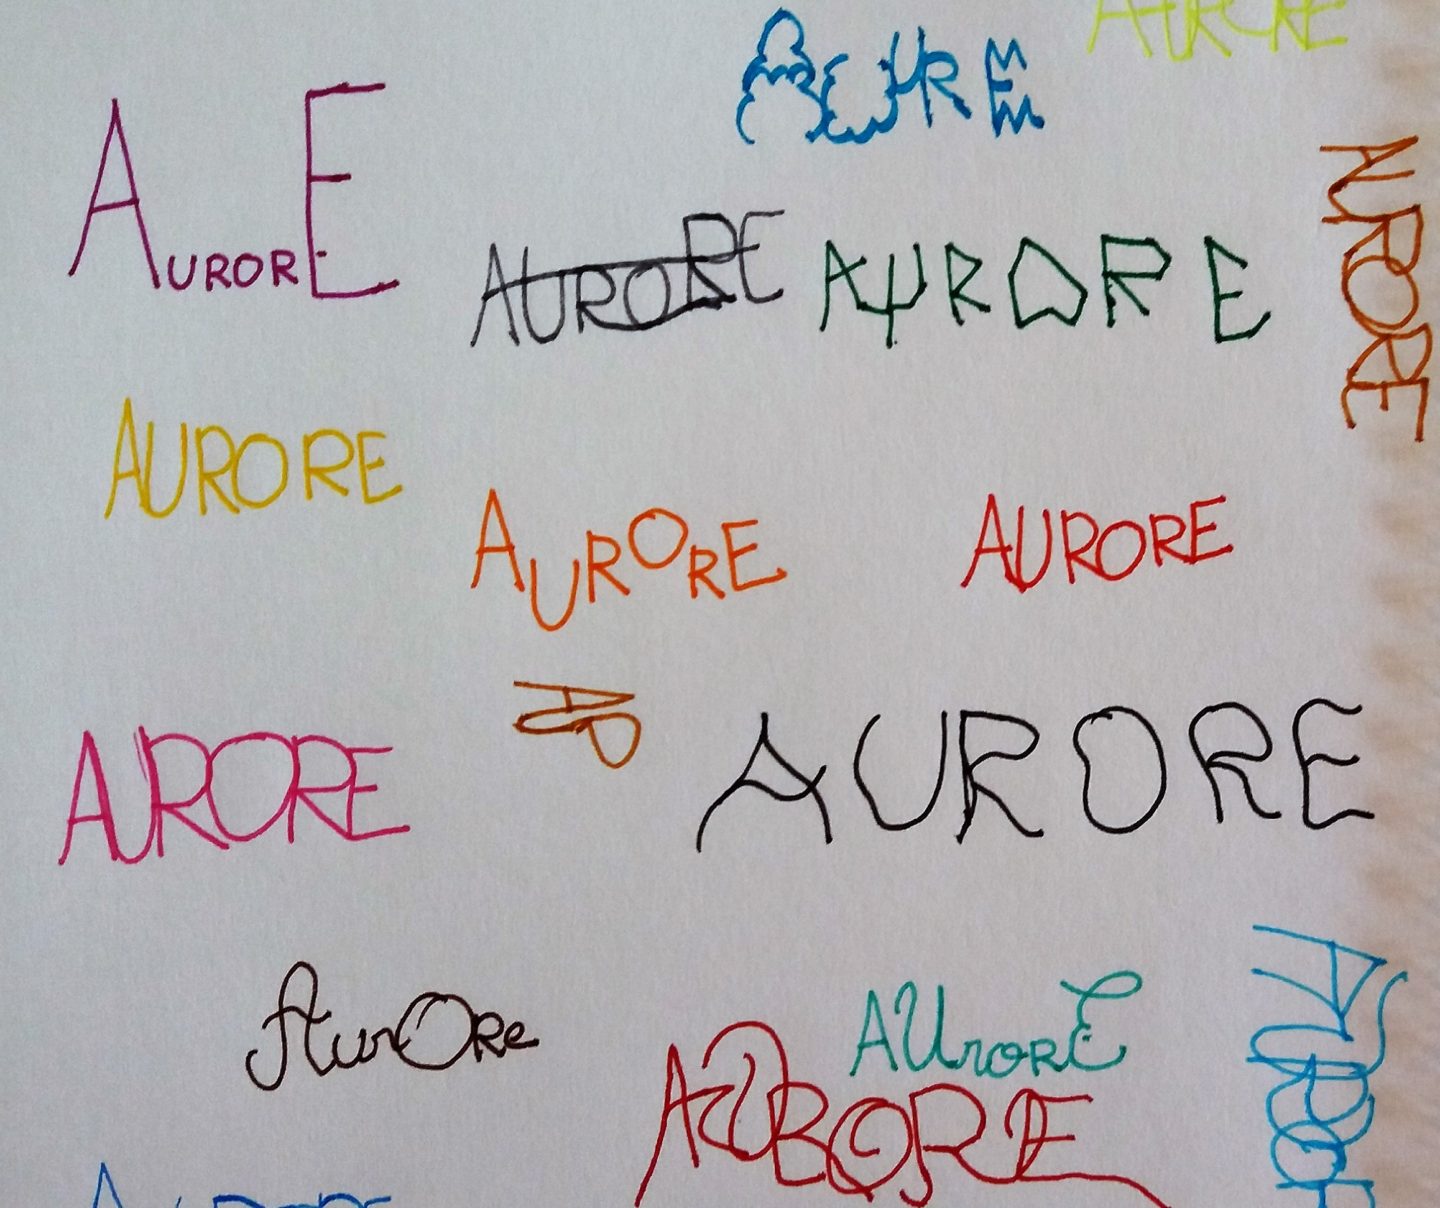 AURORE
AURORE
AURORE
AURORE
AURORE
AURORE
AURORE
AURORE
AURORE
AURORE
AURORE
AurOre
AUrorE
AURORE